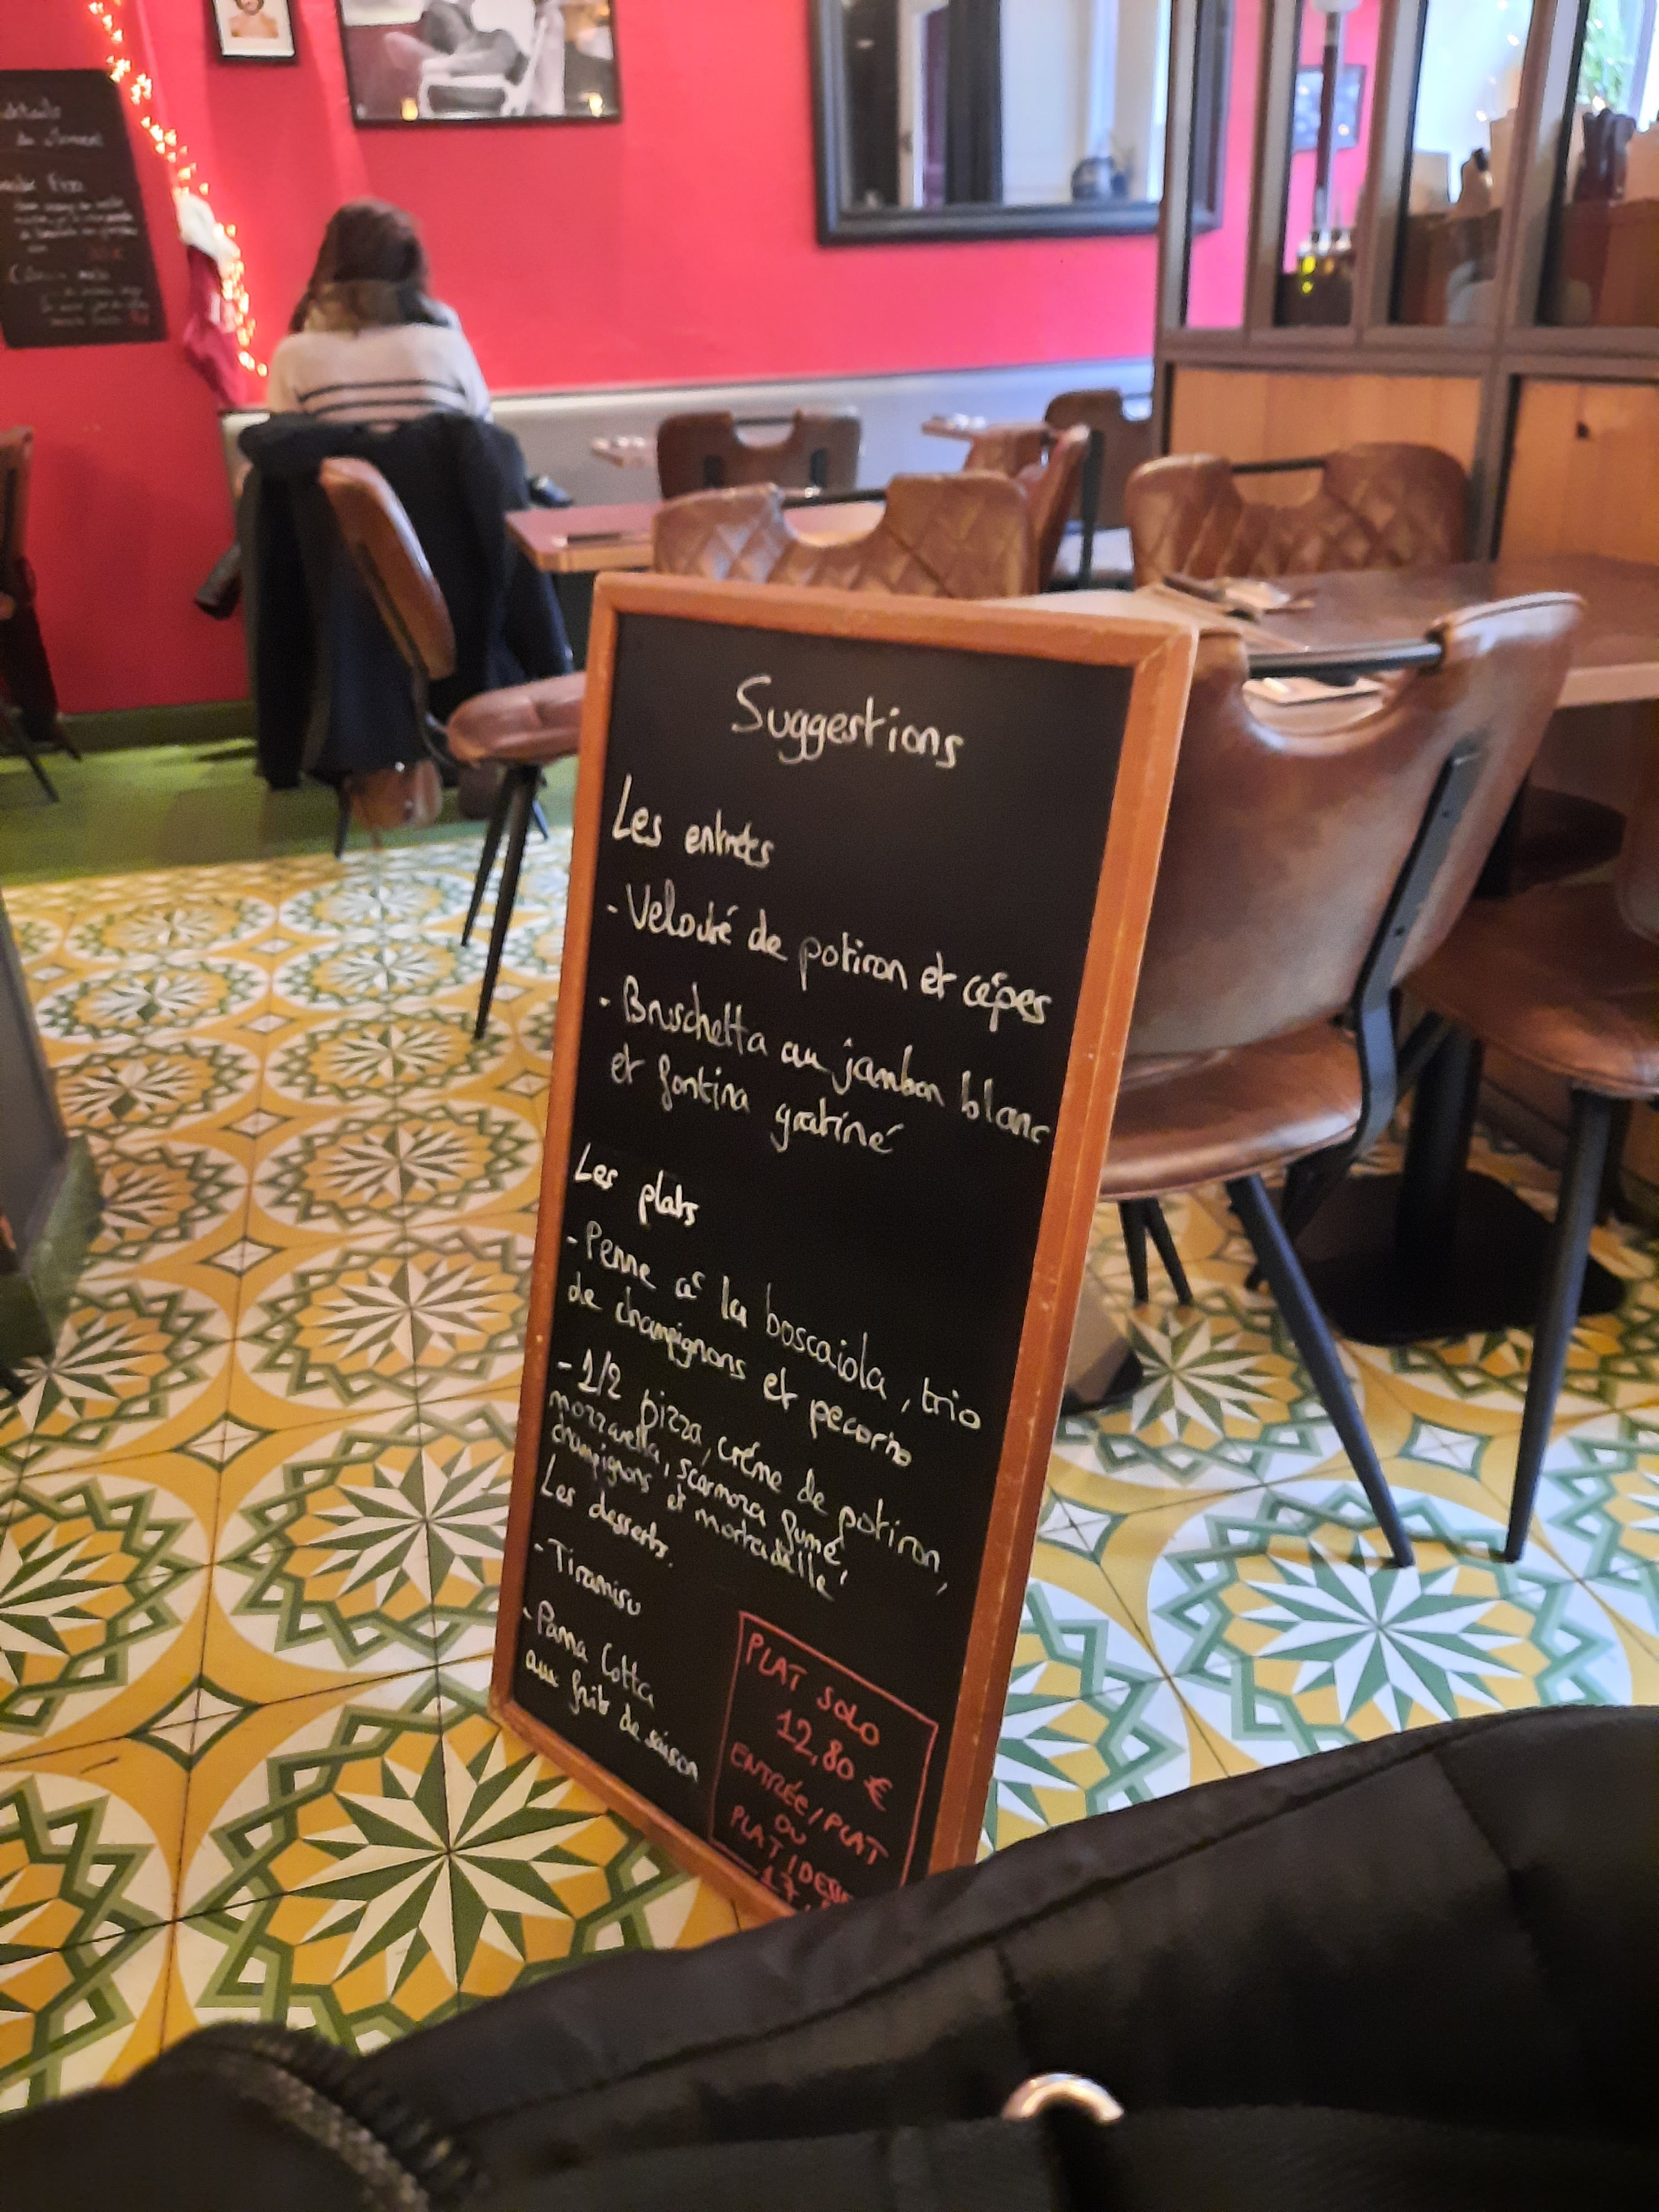 Suggestions
Les entrées
- Velouté de potiron et cêpes
- Bruschetta au jambon blanc
et fontina gratiné
Les plats
- Penne à la boscaiola, trio
de champignons et pecorino
- 1/2 pizza, crème de potiron,
mozzarella, scarmoza fumé,
champignons et mortadelle
Les desserts.
- Tiramisu
- Panna Cotta
aux fruits de saison
PLAT SOLO
12,80 €
ENTRÉE/PLAT
OU
PLAT/DESSE
17,